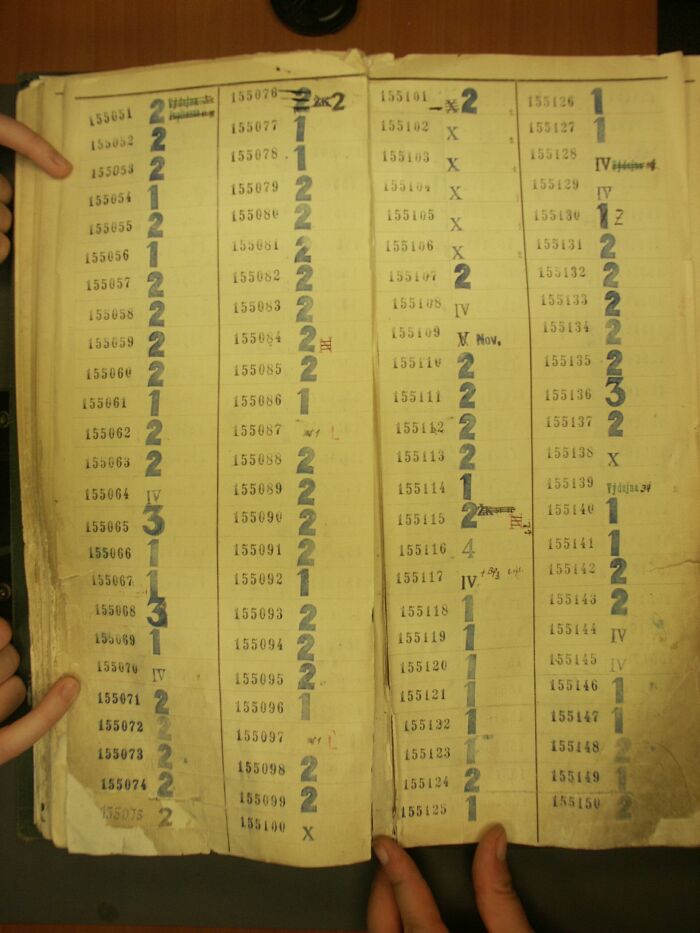 155051 2 Výdejna
155052 2
155053 2
155054 1
155055 2
155056 1
155057 2
155058 2
155059 2
155060 2
155061 1
155062 2
155063 2
155064 IV
155065 3
155066 1
155067 1
155068 3
155069 1
155070 IV
155071 2
155072 2
155073 2
155074 2
155075 2
155076 2 ŽK 2
155077 1
155078 1
155079 2
155080 2
155081 2
155082 2
155083 2
155084 2
155085 2
155086 1
155087
155088 2
155089 2
155090 2
155091 2
155092 1
155093 2
155094 2
155095 2
155096 1
155097
155098 2
155099 2
155100 X
155101 X 2
155102 X
155103 X
155104 X
155105 X
155106 X
155107 2
155108 IV
155109 V Nov.
155110 2
155111 2
155112 2
155113 2
155114 1
155115 2 ŽK
155116 4
155117 IV
155118 1
155119 1
155120 1
155121 1
155122 1
155123 1
155124 2
155125 1
155126 1
155127 1
155128 IV Výdejna
155129 IV
155130 1 Z
155131 2
155132 2
155133 2
155134 2
155135 2
155136 3
155137 2
155138 X
155139 Výdejna
155140 1
155141 1
155142 2
155143 2
155144 IV
155145 IV
155146 1
155147 1
155148 2
155149 1
155150 2